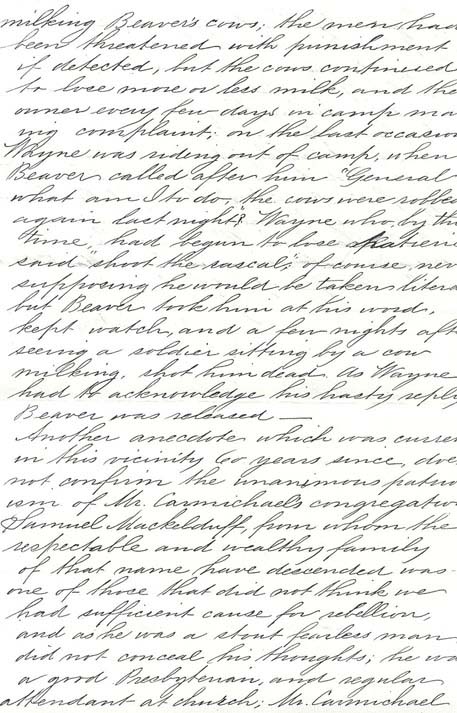 milking Beaver's cows; the men had
been threatened with punishment
if detected, but the cows continued
to lose more or less milk, and the
owner every few days in camp ma
ing complaint; on the last occasion
Wayne was riding out of camp, when
Beaver called after him "General
what am I to do, the cows were robbed
again last night"? Wayne who, by th
time, had begun to lose patienc
said "shoot the rascal"; of course, nev
supposing he would be taken litera
but Beaver took him at his word,
kept watch, and a few nights aft
seeing a soldier sitting by a cow
milking, shot him dead. As Wayne
had to acknowledge his hasty reply
Beaver was released —
Another anecdote which was curren
in this vicinity 60 years since, doe
not confirm the unanimous patrio
ism of Mr. Carmichael's congregation
Samuel Mackelduff, from whom the
respectable and wealthy family
of that name have descended was
one of those that did not think we
had sufficient cause for rebellion,
and as he was a stout fearless man
did not conceal his thoughts; he wa
a good Presbyterian, and regular
attendant at church; Mr. Carmichael